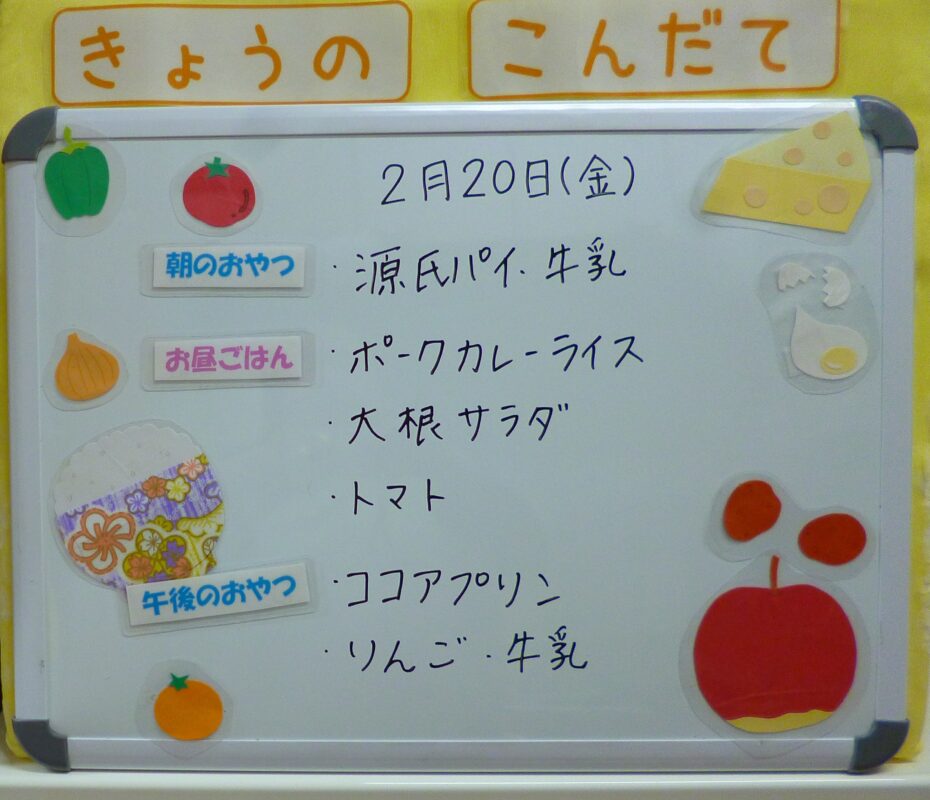 きょうの こんだて
2月20日(金)
朝のおやつ ・源氏パイ・牛乳
お昼ごはん ・ポークカレーライス
・大根サラダ
・トマト
午後のおやつ ・ココアプリン
・りんご・牛乳